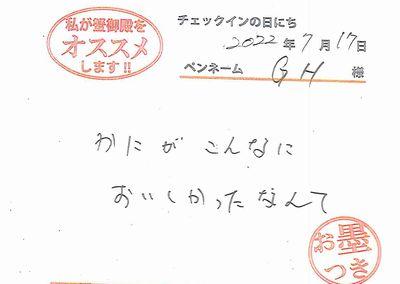 私が蟹御殿を
オススメ
します!!
チェックインの日にち
2022年7月17日
ペンネーム GH 様
かにが こんなに
おいしかったなんて
お墨
つき